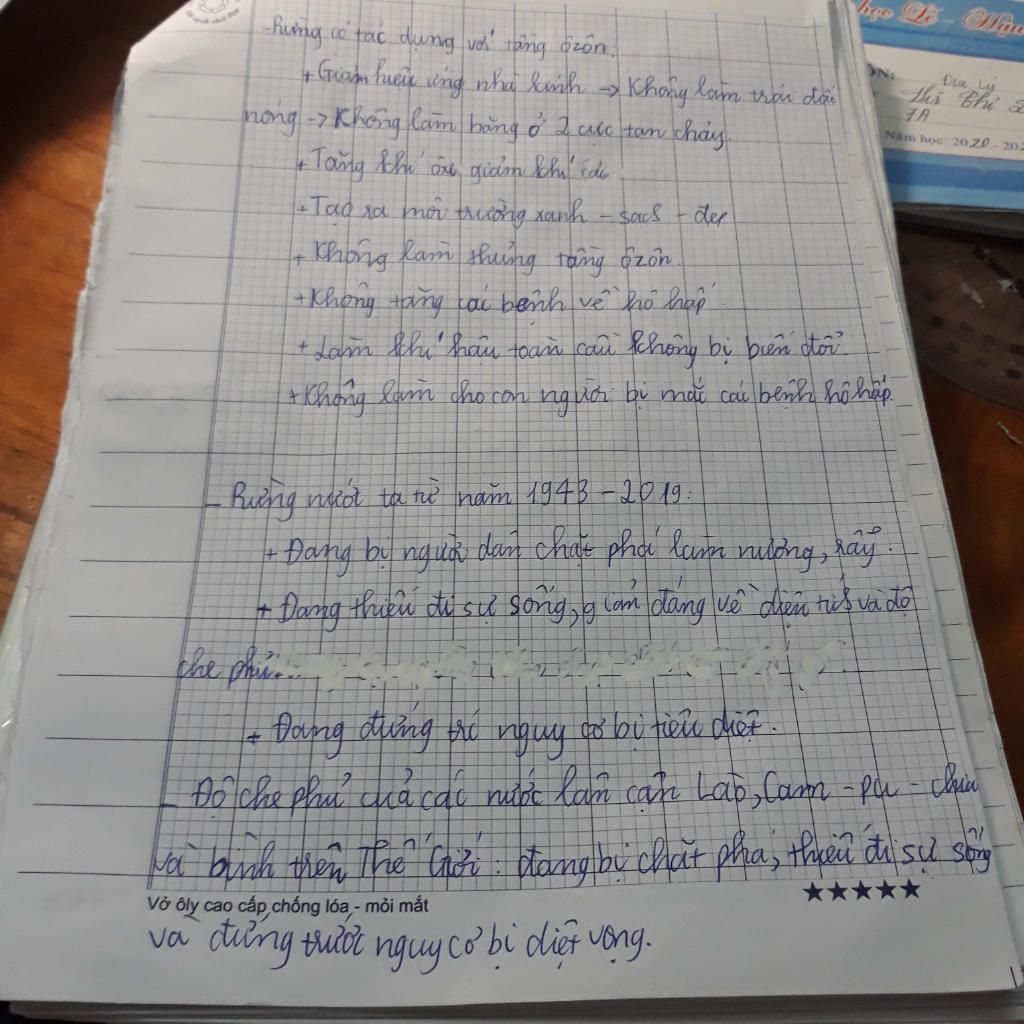 -Rừng có tác dụng với tầng ôzôn:
+ Giảm hiệu ứng nhà kính → Không làm trái đất
nóng → Không làm băng ở 2 cực tan chảy.
+ Tăng khí ôxi, giảm khí
+ Tạo ra môi trường xanh - sạch - đẹp
+ Không làm thủng tầng ôzôn.
+ Không tăng các bệnh về hô hấp
+ Làm khí hậu toàn cầu không bị biến đổi.
+ Không làm cho con người bị mắc các bệnh hô hấp.
- Rừng nướt ta từ năm 1943 - 2019:
+ Đang bị người dân chặt phá làm nương, rẫy.
+ Đang thiếu đi sự sống, giảm đáng về diện tích và độ
che phủ...
+ Đang đứng trc nguy cơ bị tiêu diệt.
- Độ che phủ của các nước lân cận Lào, Cam - pu - chia
và bình trên Thế Giới: đang bị chặt phá, thiếu đi sự sống
Vở ôly cao cấp, chống lóa - mỏi mắt
★★★★★
và đứng trước nguy cơ bị diệt vong.
học Lễ - Hậu
Địa Lý
Thị
7A
Năm học: 2020 - 202